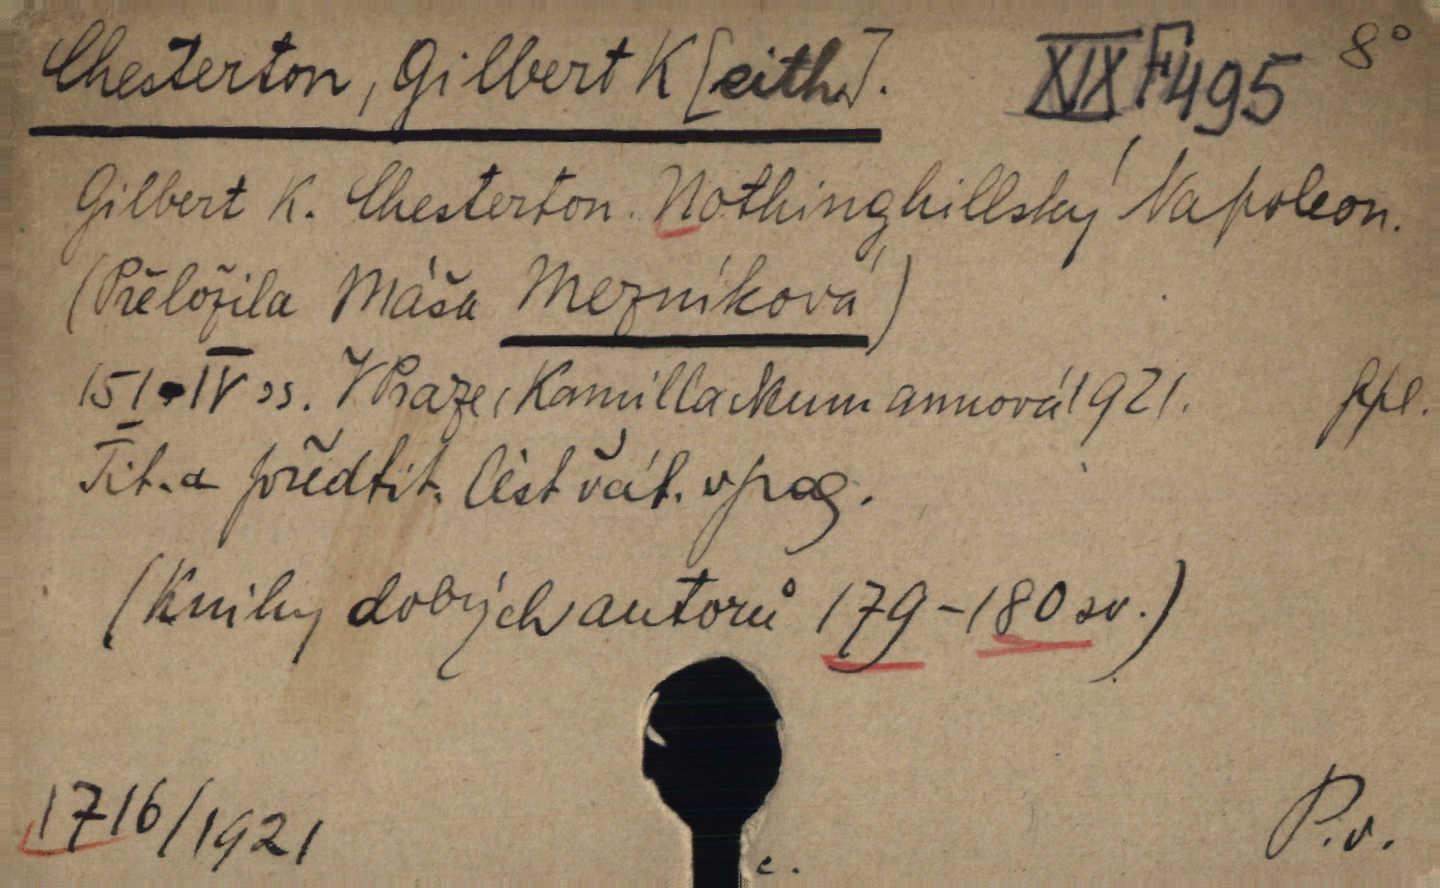 Chesterton, Gilbert K[eith]. XIX F 495 8°
Gilbert K. Chesterton. Nothinghillský Napoleon.
(Přeložila Máša Mezníková)
151 + IV ss. V Praze, Kamilla Neumannová 1921. ppl.
Tit. a předtit. list váz. v pag.
(Knihy dobrých autorů 179-180 sv.)
1716/1921 c. P.v.